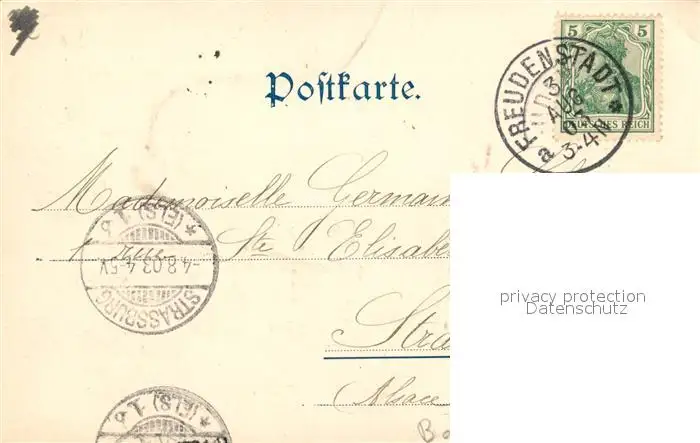 Postkarte.
5 5
DEUTSCHES REICH
FREUDENSTADT *
3
AUG
03
3-4N
a
Mademoiselle
1 rue Ste
* (ELS) 1. g
-4.8.03.4-5V.
STRASSBURG
Alsace
* (ELS) 1. g
privacy protection
Datenschutz